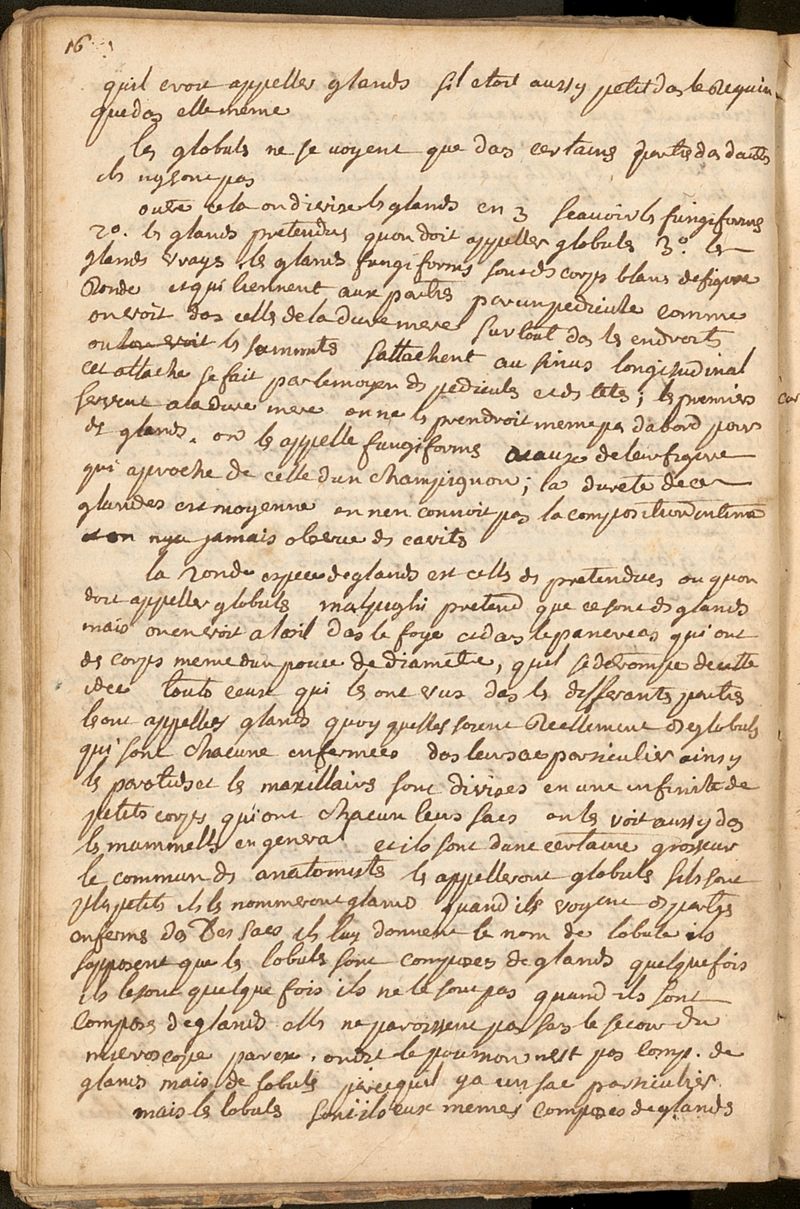 16
quil evoit appeller glands sil etoit aussy petit das le Requin
que das elle meme
les globuls ne se voyent que das certains parties das dautres
ils ny sont pas
outre cela on divise ls glands en 3 Scavoir ls fungiforms
2º. ls glands pretendus quon doit appeller globuls 3º. ls
glands vrays ls glands fungiforms sont ds corps blans de figure
Ronde et qui tiennent aux parties par un pedicule comme
on voit das celles de la dure mere sur tout das ls endroits
ou lon voit ls sommits sattachent au sinus longitudinal
cet attache se fait par le moyen ds pedicules et ds tetes; ls premiers
servent a la dure mere on ne ls prendroit meme pas dabord pour
ds glands. on ls appelle fungiforms a caux de leur figure
qui aproche de celle dun champignon; la durete de ces
glandes est moyenne on nen connoit pas la composition intime
et on nya jamais observe ds cavits
la 2onde espece de glands est cells ds pretendues ou quon
doit appeller globuls malpighi pretend que ce sont ds glands
mais on en voit a loeil das le foye et das le pancreas qui ont
ds corps meme dun pouce de diametre, quil se detrompe de cette
idee touts ceux qui ls ont vus das ls differants parties
ls ont appelles glands quoy quelles soient Reellement ds globuls
qui sont chacune enfermees das leur sac particulier ainsy
ls parotids et ls maxillairs sont divises en une infinite de
petits corps qui ont chacun leurs sacs on ls voit aussy das
ls mammells en general et ils sont dune certaine grosseur
le commun ds anatomists ls appelleront globuls sils sont
plus petits ils ls nommeront gland quand ils voyent ds parties
enferms das Des sacs ils luy donnent le nom de lobule ils
supposent que ls lobuls sont composes de glands quelque fois
ils le sont quelque fois ils ne le sont pas quand ils sont
composes de glands ells ne paroissent pas sans le secour du
microscope par ex. on dit le poumon nest pas comp. de
glands mais de lobuls parcequil ya un sac particulier
mais ls lobuls sont ils eux memes composes de glands